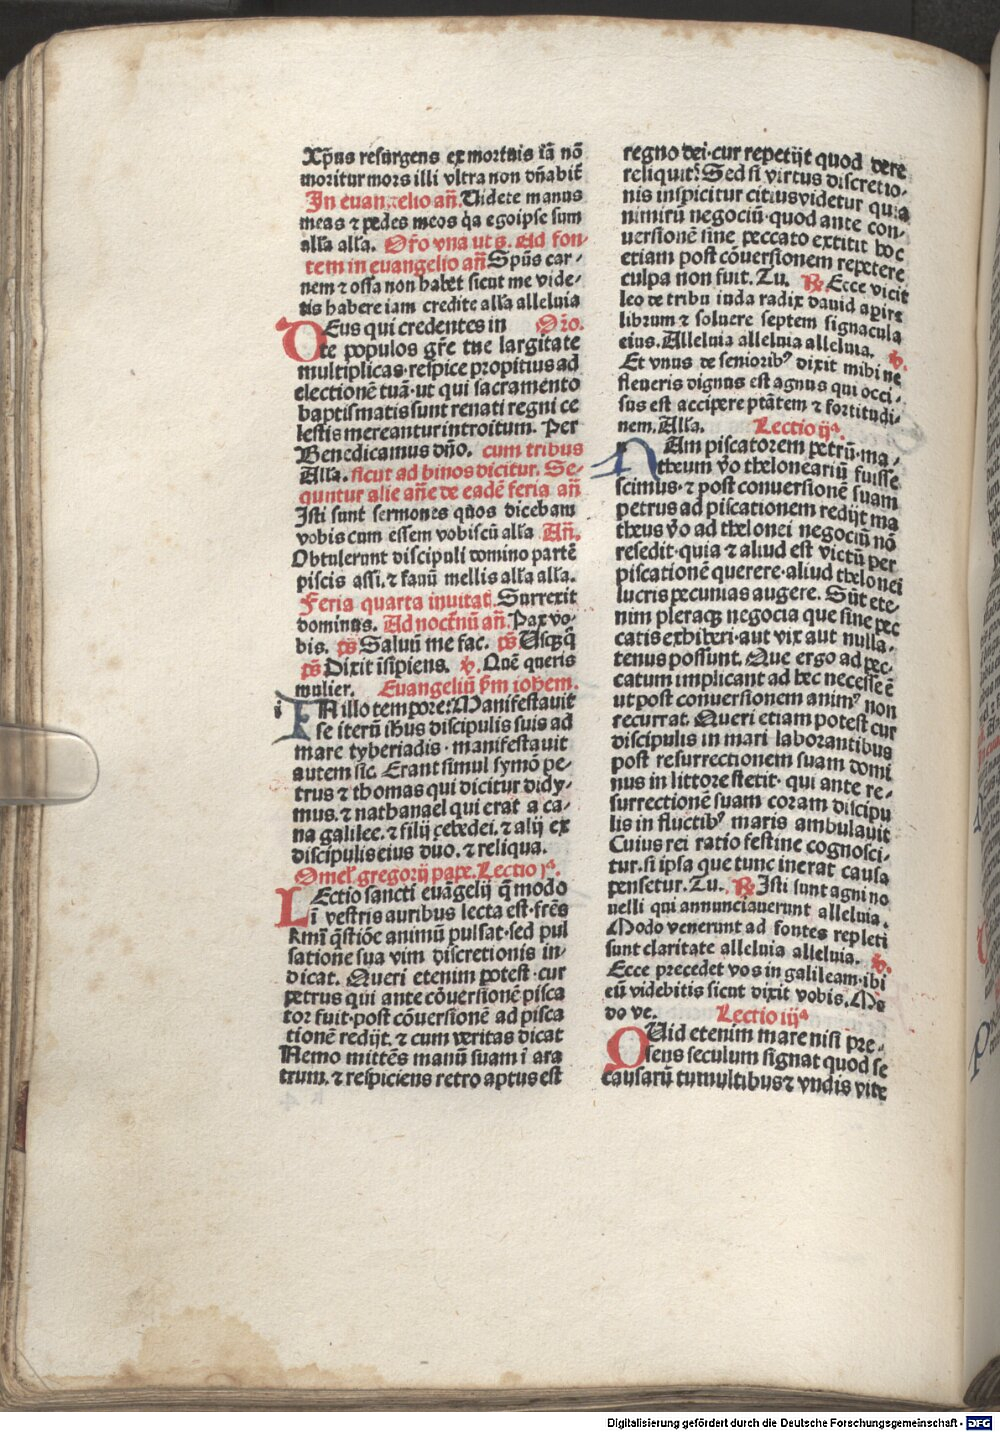 Xp̄us resurgens ex mortuis iā nō
moritur mors illi vltra non dn̄abit̄
In euangelio an̄. Videte manus
meas ⁊ pedes meos q̄a ego ipse sum
all'a all'a. Or̄o vna ut s. Ad fon-
tem in euangelio an̄ Sp̄us car-
nem ⁊ ossa non habet sicut me vide-
tis habere iam credite all'a alleluia
DEus qui credentes in Or̄o.
te populos gr̄e tue largitate
multiplicas·respice propitius ad
electionē tuā·ut qui sacramento
baptismatis sunt renati regni ce
lestis mereantur introitum. Per
Benedicamus dn̄o. cum tribus
All'a. sicut ad binos dicitur. Se-
quntur alie an̄e de eadē feria an̄
Isti sunt sermones quos dicebam
vobis cum essem vobiscū all'a An̄.
Obtulerunt discipuli domino partē
piscis assi.⁊ fauū mellis all'a all'a.
Feria quarta inuitat̄. Surrexit
dominus. Ad noct̄nū an̄. Pax vo-
bis. ps̄ Saluū me fac. ps̄ Usq̄q̄
ps̄ Dixit īsipiens. v̄. Quē queris
mulier. Euangeliū s̄m ioh̄em.
IN illo tempore: Manifestauit
se iterū ih̄us discipulis suis ad
mare tyberiadis·manifestauit
autem sic. Erant simul symō pe-
trus ⁊ thomas qui dicitur didy-
mus.⁊ nathanael qui erat a ca-
na galilee.⁊ filij cebedei.⁊ alij ex
discipulis eius duo.⁊ reliqua.
Omel' gregorij pape. Lectio jª.
LEctio sancti euāgelij q̄ modo
ī vestris auribus lecta est·frēs
kmī q̄stiōe animū pulsat·sed pul
satione sua vim discretionis in-
dicat. Queri etenim potest·cur
petrus qui ante cōuersionē pisca
tor fuit·post cōuersionē ad pisca
tionē redijt.⁊ cum veritas dicat
Nemo mittēs manū suam ī ara
trum.⁊ respiciens retro aptus est
regno dei·cur repetijt quod dere
reliquit? Sed si virtus discretio-
nis inspicitur citius videtur quia
nimirū negociū·quod ante con-
uersionē sine peccato extitit hoc
etiam post cōuersionem repetere
culpa non fuit. Tu. R̄ Ecce vicit
leo de tribu iuda radix dauid apire
librum ⁊ soluere septem signacula
eius. Alleluia alleluia alleluia. v̄.
Et vnus de seniorib⁹ dixit mihi ne
fleueris dignus est agnus qui occi-
sus est accipere ptātem ⁊ fortitudi-
nem. All'a. Lectio ijª.
NAm piscatorem petrū·ma-
theum v̄o theloneariū fuisse
scimus·⁊ post conuersionē suam
petrus ad piscationem redijt ma
theus v̄o ad thelonei negociū nō
resedit·quia ⁊ aliud est victū per
piscationē querere·aliud thelonei
lucris pecunias augere. Sūt ete-
nim pleraq̄ negocia que sine pec
catis exhiberi·aut vix aut nulla-
tenus possunt. Que ergo ad pec-
catum implicant ad hec necesse ē
ut post conuersionem anim⁹ non
recurrat. Queri etiam potest cur
discipulis in mari laborantibus
post resurrectionem suam domi
nus in littore stetit· qui ante re-
surrectionē suam coram discipu
lis in fluctib⁹ maris ambulauit
Cuius rei ratio festine cognosci-
tur.si ipsa que tunc inerat causa
pensetur. Tu. R̄ Isti sunt agni no
uelli qui annunciauerunt alleluia.
Modo venerunt ad fontes repleti
sunt claritate alleluia alleluia. v̄.
Ecce precedet vos in galileam·ibi
eū videbitis sicut dixit vobis. Mo
do ve. Lectio iijª
QUid etenim mare nisi pre-
sens seculum signat quod se
causarū tumultibus ⁊ vndis vite
Digitalisierung gefördert durch die Deutsche Forschungsgemeinschaft - DFG